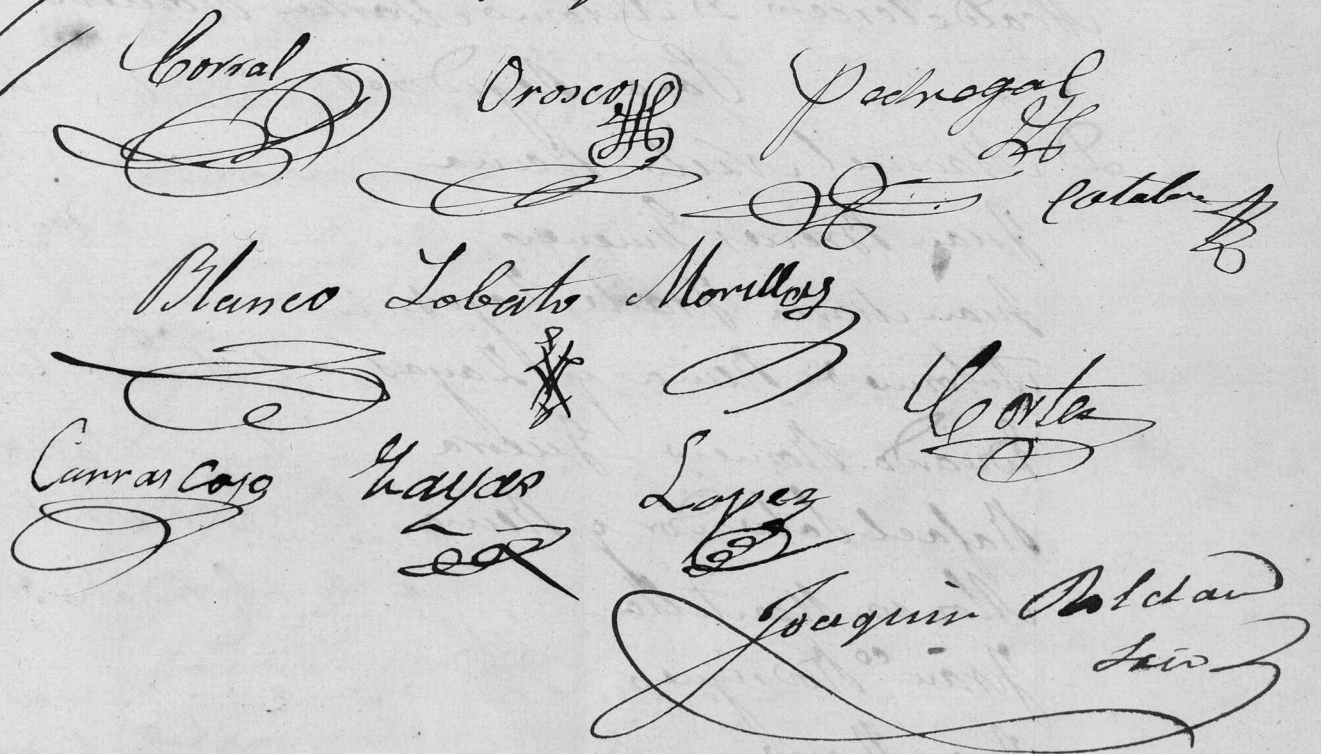 Corral Orosco Pedregal
Blanco Lobato Morillas
Cortes
Carrascoso Zayas Lopez
Joaquin Roldan
Srio